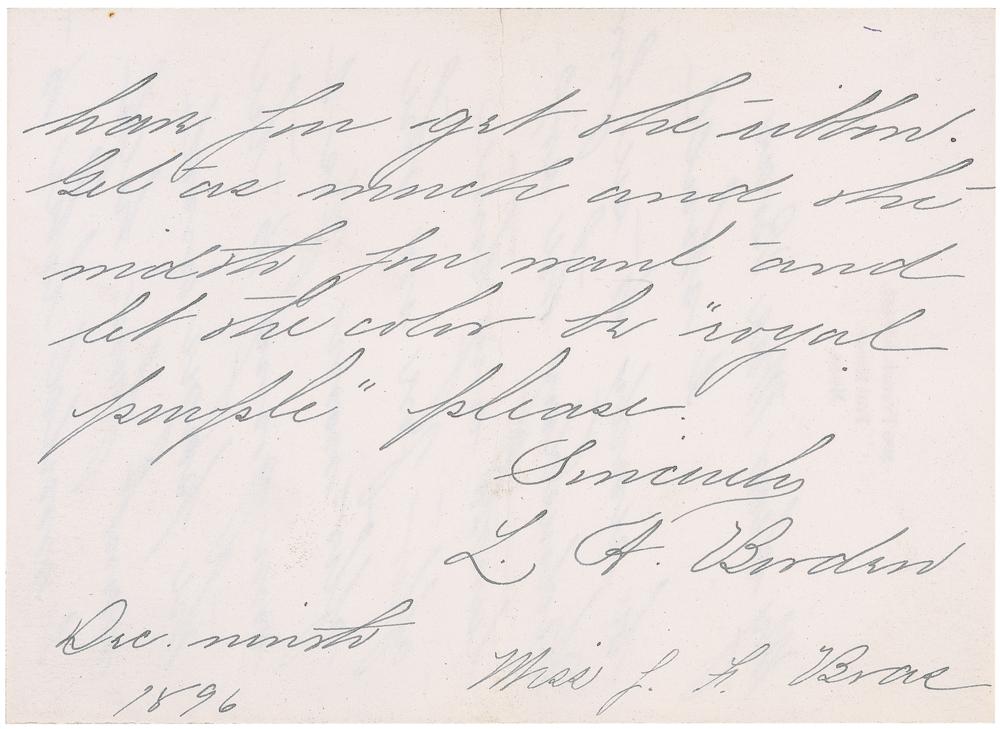 have you get the ribbon.
Get as much and the
width you want and
let the color be "royal
purple" please.
Sincerely
L. A. Borden
Dec. ninth
1896
Miss J. F. Brae